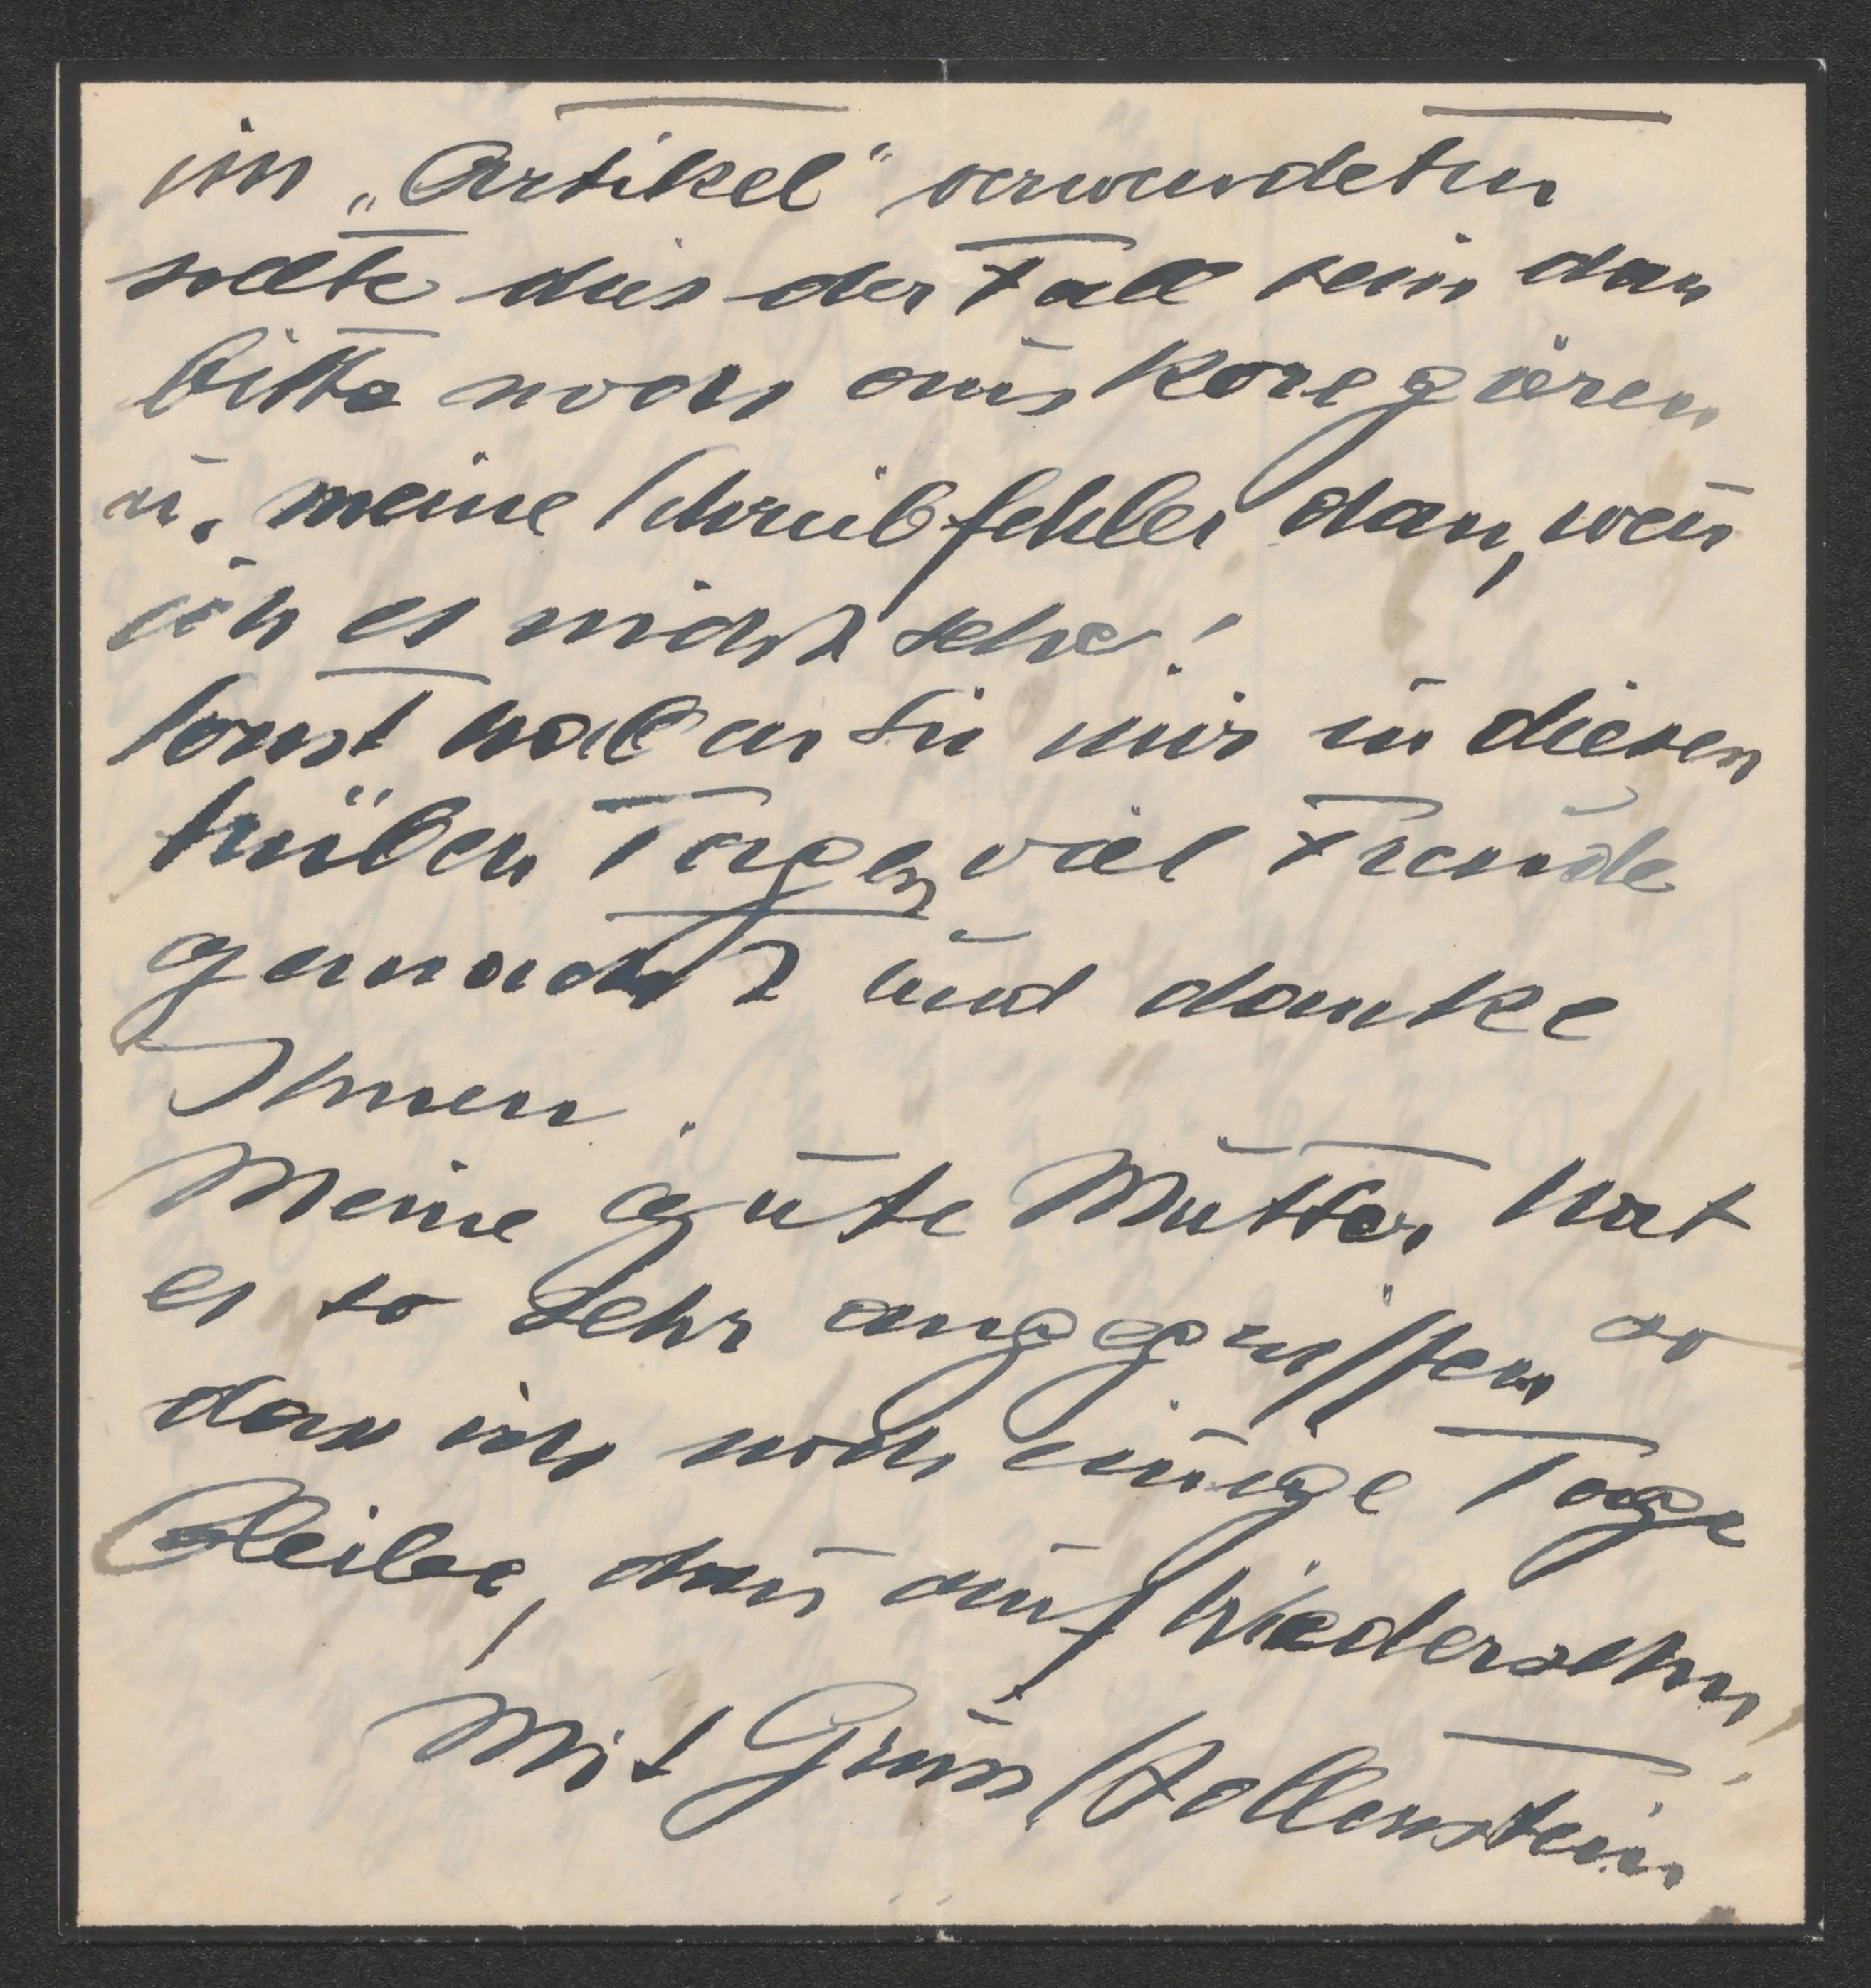 im „Artikel" verwendeten
sollte dies der Fall sein dan
bitte noch aus koregieren
u. meine Schreibfehler dan, wen̄
ich es nicht sehe!
Sonst haben Sie mir in diesen
trüben Tagen viel Freude
gemacht und danke
Ihnen.
Meine gute Mutter hat
es so sehr angegriffen so
dass ich noch einige Tage
bleibe, dan̄ auf Wiedersehn!
Mit Gruss Stollenstein